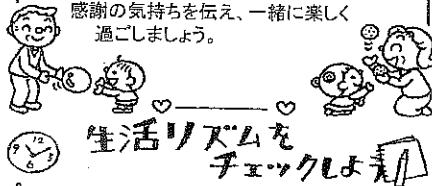 感謝の気持ちを伝え、一緒に楽しく
過ごしましょう。
生活リズムを
チェックしよう
12
9
3
6